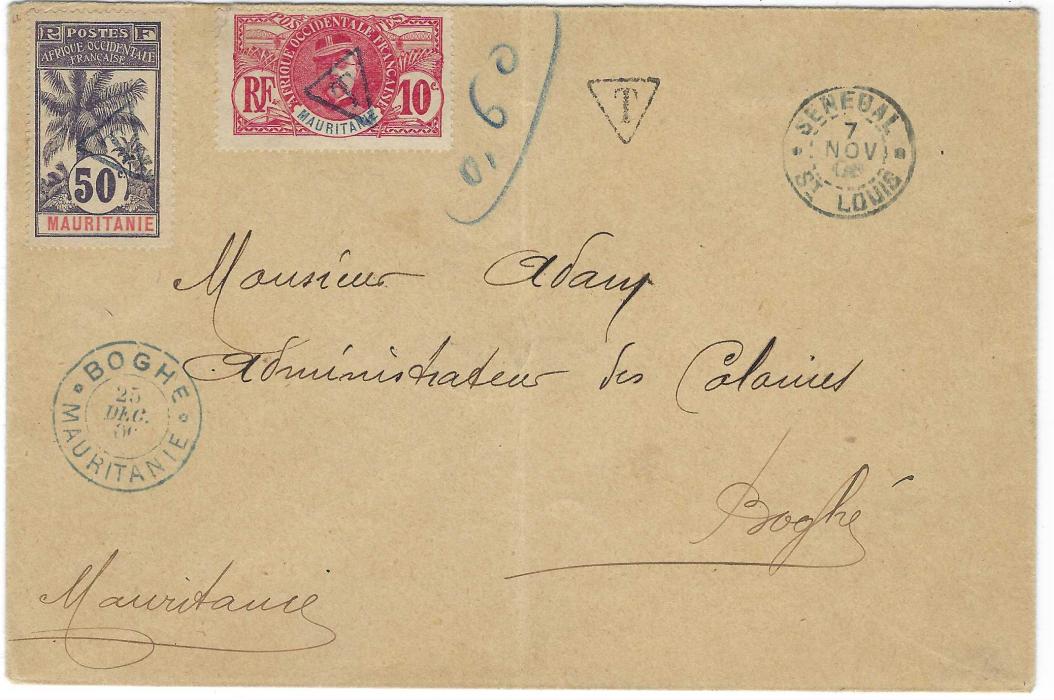 R POSTES F
AFRIQUE OCCIDENTALE
FRANÇAISE
50 c.
MAURITANIE
POSTES
AFRIQUE OCCIDENTALE FRANÇAISE
RF
10 c.
T
MAURITANIE
0,60
T
SENEGAL
7
NOV
ST LOUIS
Monsieur Adam
Administrateur des Colonies
BOGHE
25
DEC.
MAURITANIE
Boghé
Mauritanie